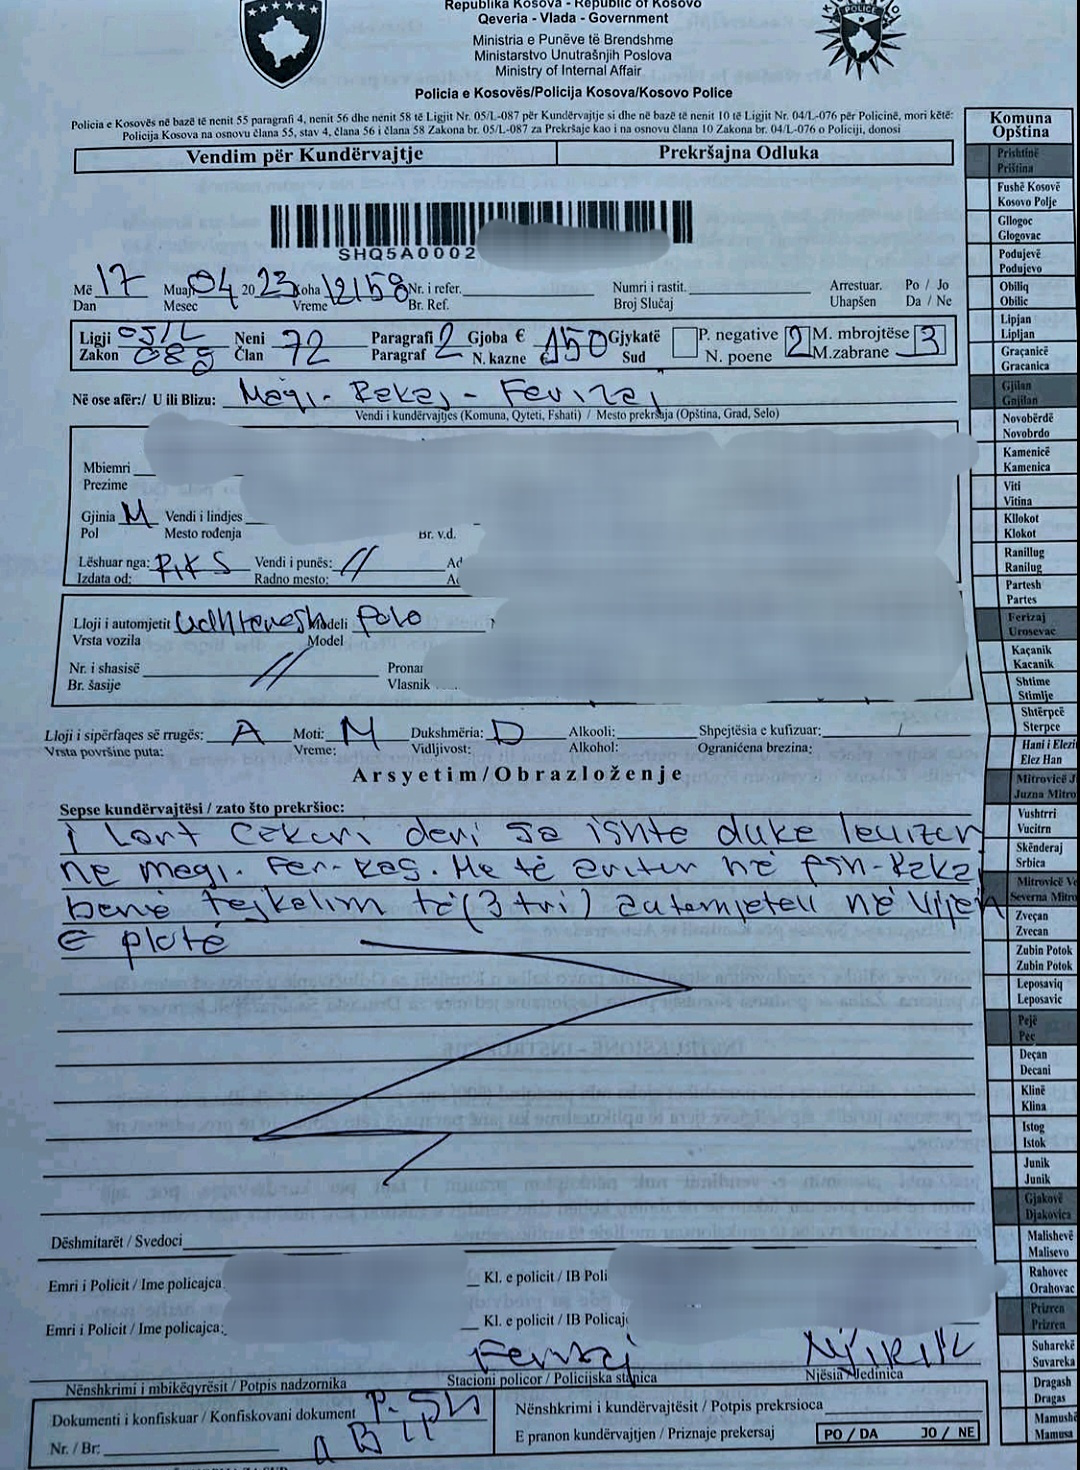 Republika Kosova - Republic of Kosovo
Qeveria - Vlada - Government
Ministria e Punëve të Brendshme
Ministarstvo Unutrašnjih Poslova
Ministry of Internal Affair
Policia e Kosovës/Policija Kosova/Kosovo Police
POLICE
Policia e Kosovës në bazë të nenit 55 paragrafi 4, nenit 56 dhe nenit 58 të Ligjit Nr. 05/L-087 për Kundërvajtje si dhe në bazë të nenit 10 të Ligjit Nr. 04/L-076 për Policinë, mori këtë:
Policija Kosova na osnovu člana 55, stav 4, člana 56 i člana 58 Zakona br. 05/L-087 za Prekršaje kao i na osnovu člana 10 Zakona br. 04/L-076 o Policiji, donosi
Vendim për Kundërvajtje Prekršajna Odluka
SHQ5A0002
Më 17 Muaji 04 2023 Koha 12158 Nr. i refer. Numri i rastit. Arrestuar. Po / Jo
Dan Mesec Vreme Br. Ref. Broj Slučaj Uhapšen Da / Ne
Ligji 05/L Neni 72 Paragrafi 2 Gjoba € 150 Gjykatë P. negative 2 M. mbrojtëse 3
Zakon 088 Član Paragraf N. kazne € Sud N. poene M.zabrane
Në ose afër:/ U ili Blizu: Magj. - Rakaj - Ferizaj
Vendi i kundërvajtjes (Komuna, Qyteti, Fshati) / Mesto prekršaja (Opština, Grad, Selo)
Mbiemri
Prezime
Gjinia M Vendi i lindjes
Pol Mesto rođenja Br. v.d.
Lëshuar nga: RKS Vendi i punës: // Ad
Izdata od: Radno mesto: A
Lloji i automjetit Udhtaresh Modeli Polo
Vrsta vozila Model
Nr. i shasisë // Pronar
Br. šasije Vlasnik
Lloji i sipërfaqes së rrugës: A Moti: M Dukshmëria: D Alkooli: Shpejtësia e kufizuar: /
Vrsta površine puta: Vreme: Vidljivost: Alkohol: Ograničena brezina:
Arsyetim/Obrazloženje
Sepse kundërvajtësi / zato što prekršioc:
I lart cekuri deri sa ishte duke levizur
ne magj. Fer-Kaç. Me të arritur në
benë tejkalim të (3 tri) automjeteve në vijën
e plotë
Dëshmitarët / Svedoci
Emri i Policit / Ime policajca Kl. e policit / IB Poli
Emri i Policit / Ime policajca: Kl. e policit / IB Policaj
Ferizaj
Nënshkrimi i mbikëqyrësit / Potpis nadzornika Stacioni policor / Policijska stanica Njësia / Jedinica
Dokumenti i konfiskuar / Konfiskovani dokument P. SH Nënshkrimi i kundërvajtësit / Potpis prekrsioca
Nr. / Br: E pranon kundërvajtjen / Priznaje prekersaj PO / DA JO / NE
Komuna
Opština
Prishtinë
Priština
Fushë Kosovë
Kosovo Polje
Gllogoc
Glogovac
Podujevë
Podujevo
Obiliq
Obilic
Lipjan
Lipljan
Graçanicë
Gracanica
Gjilan
Gnjilan
Novobërdë
Novobrdo
Kamenicë
Kamenica
Viti
Vitina
Kllokot
Klokot
Ranillug
Ranilug
Partesh
Partes
Ferizaj
Urosevac
Kaçanik
Kacanik
Shtime
Stimlje
Shtërpcë
Sterpce
Hani i Elezi
Elez Han
Mitrovicë J
Juzna Mitro
Vushtrri
Vucitrn
Skënderaj
Srbica
Mitrovicë Ve
Severna Mitro
Zveçan
Zvecan
Zubin Potok
Zubin Potok
Leposaviq
Leposavic
Pejë
Pec
Deçan
Decani
Klinë
Klina
Istog
Istok
Junik
Junik
Gjakovë
Djakovica
Malishevë
Malisevo
Rahovec
Orahovac
Prizren
Prizren
Suharekë
Suvareka
Dragash
Dragas
Mamushë
Mamusa